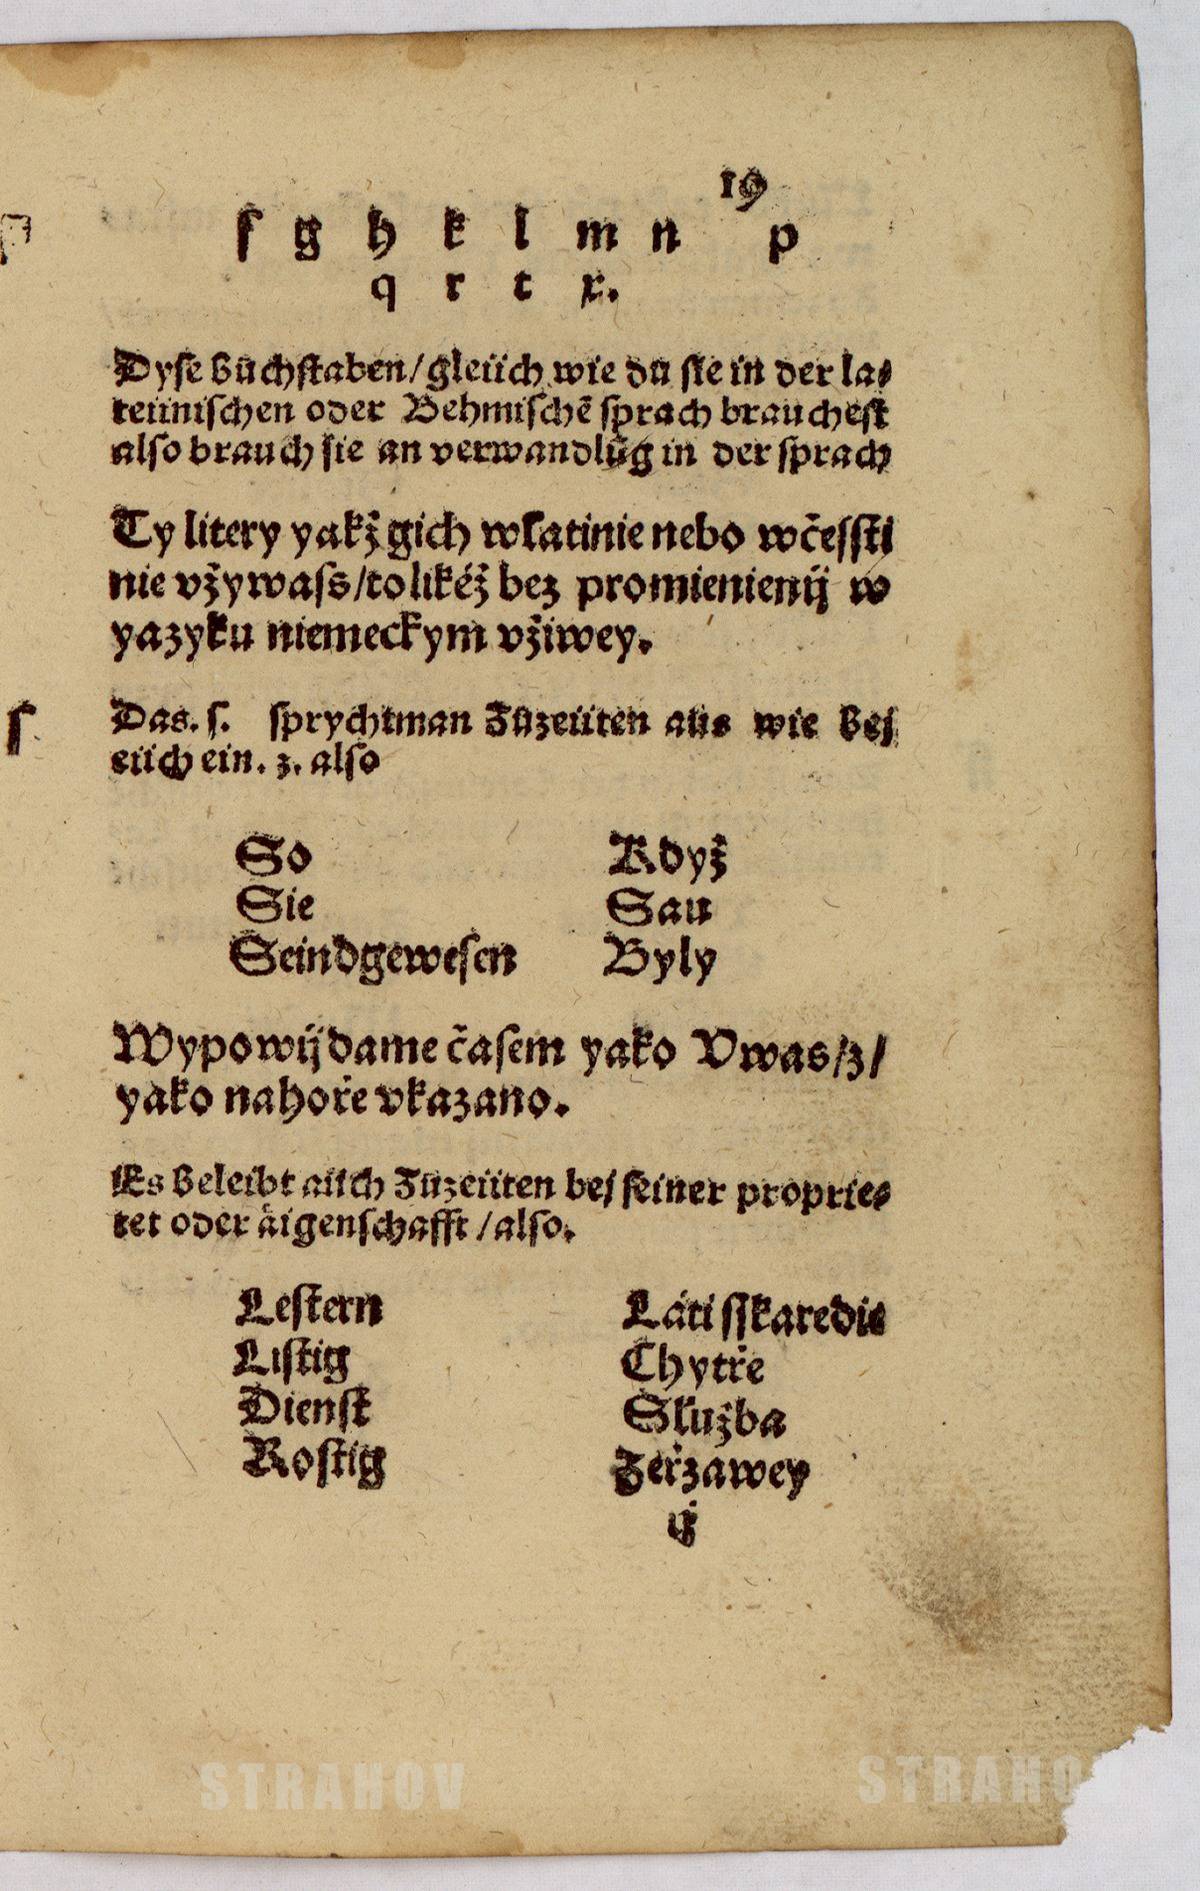 19
f g h k l m n p
q r t x.
Dyſe Bůchſtaben/gleiich wie dů ſie in der la⸗
teiiniſchen oder Behmiſchē ſprach brauchest
alſo brauch ſie an verwandlūg in der ſprach
Ty litery yakž gich wlatinie nebo wčeſſti
nie vžywaſs/tolikéž bez promienienij w
yazyku niemeckym vžiwey.
ſ
Das. ſ. ſprychtman Zůzeiiten aus wie Bej
eiich ein. z. alſo
So Když
Sie Sau
Seindgeweſen Byly
Wypowijdame čaſem yako Vwas/z/
yako nahoře vkazano.
Es Beleibt aůch Zůzeiiten bej ſeiner proprie⸗
tet oder äigenſchafft/alſo.
Leſtern Láti ſſkaredie
Liſtig Chytře
Dienſt Služba
Roſtig Zeřzawey
ij
STRAHOV STRAHOV